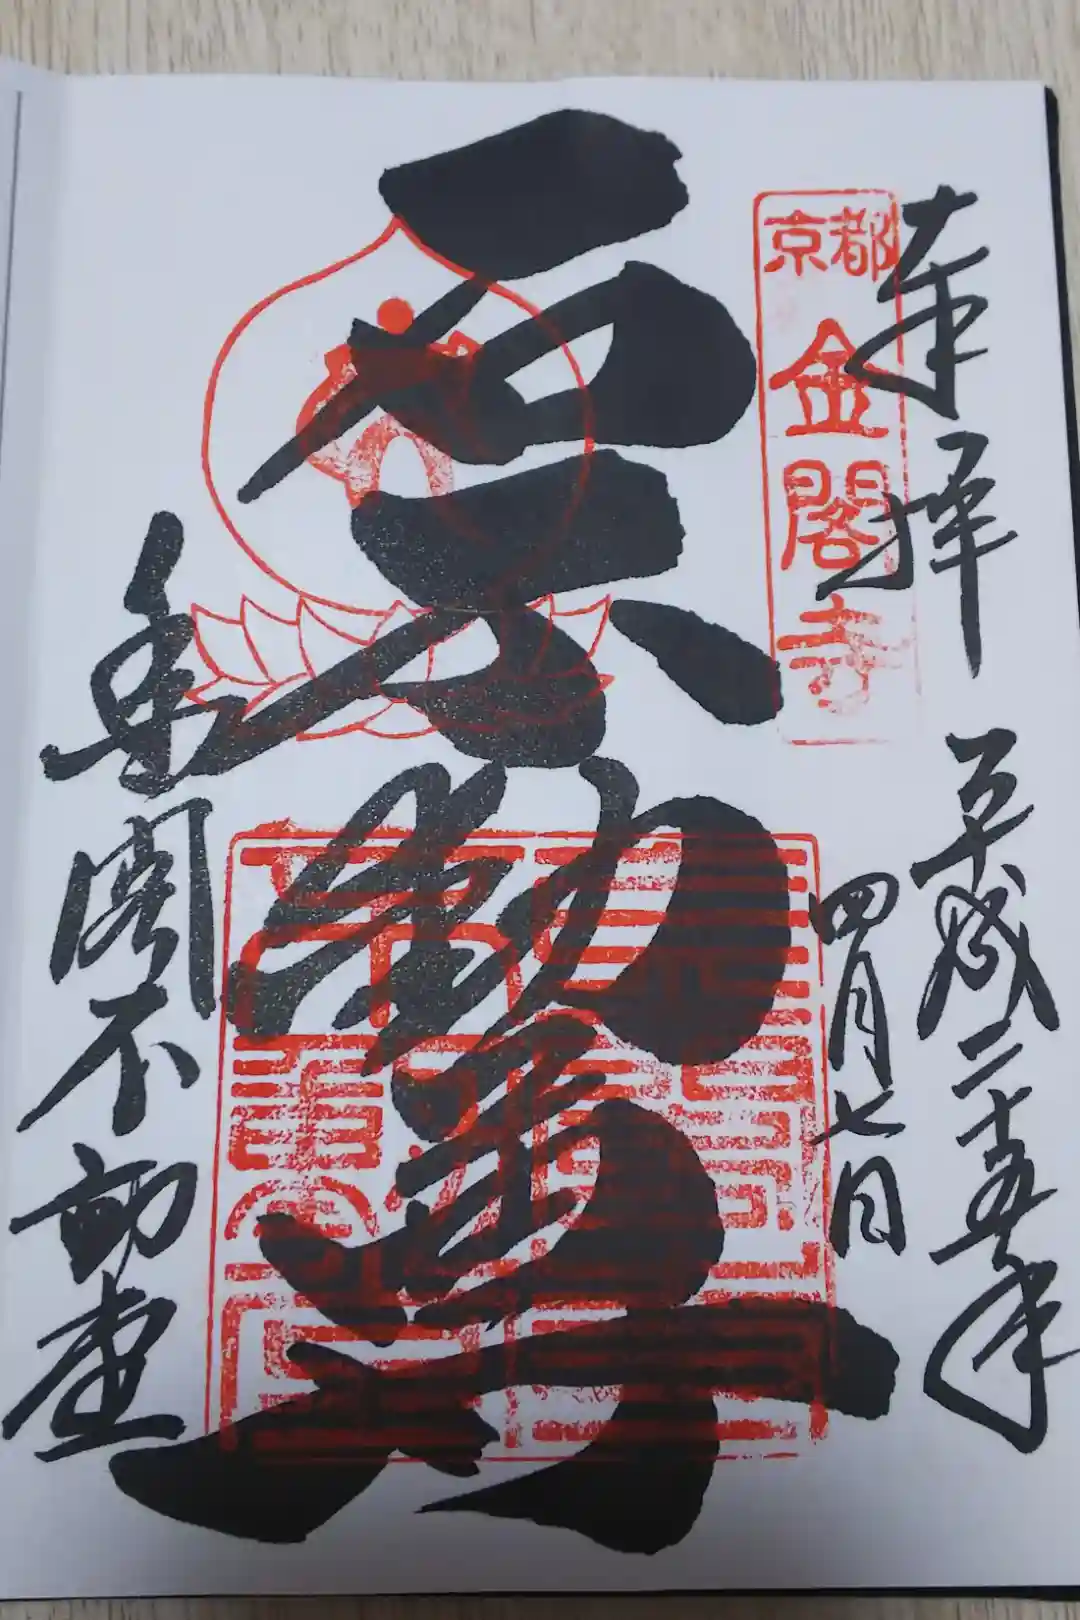 奉拝
京都
金閣寺
平成二十五年
四月七日
石不動尊
金閣不動堂